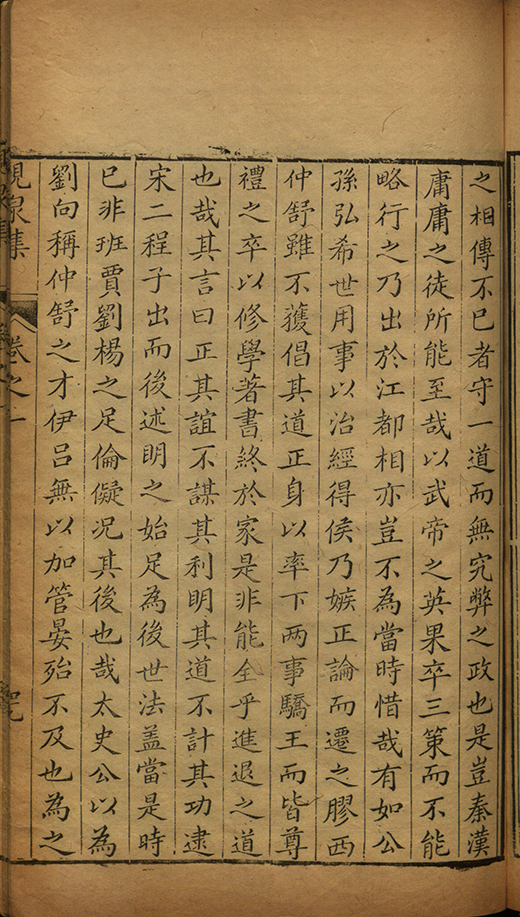 之相傳不已者守一道而無究弊之政也是豈秦漢
庸庸之徒所能至哉以武帝之英果卒三策而不能
略行之乃出於江都相亦豈不為當時惜哉有如公
孫弘希世用事以治經得侯乃嫉正論而遷之膠西
仲舒雖不獲倡其道正身以率下两事驕王而皆尊
禮之卒以修學著書終於家是非能全乎進退之道
也哉其言曰正其誼不謀其利明其道不計其功逮
宋二程子出而後述明之始足為後世法盖當是時
已非班賈劉楊之足倫儗况其後也哉太史公以為
劉向稱仲舒之才伊吕無以加管晏殆不及也為之
集
卷之